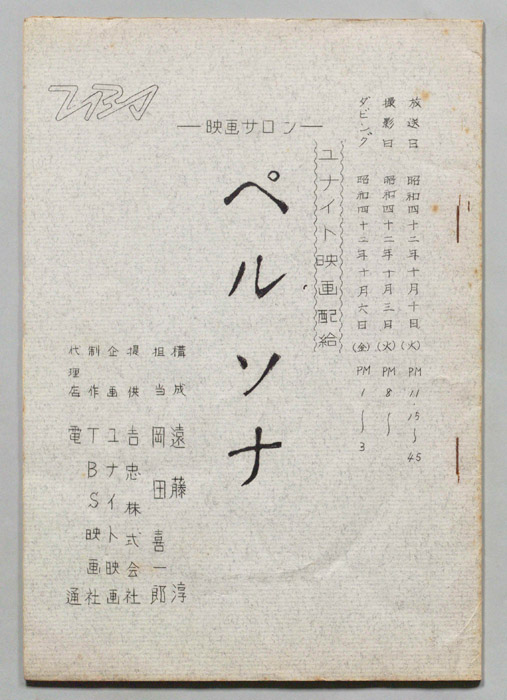 TBS
―映画サロン―
放送日　昭和四十二年十月十日(火)　PM 11.15～45
撮影日　昭和四十二年十月三日(火)　PM 8～
ダビング　昭和四十二年十月六日(金)　PM 1～3
ユナイト映画配給
ペルソナ
構成　遠藤　淳
担当　岡田喜一郎
提供　吉忠株式会社
企画　ユナイト映画
制作　TBS映画社
代理店　電通